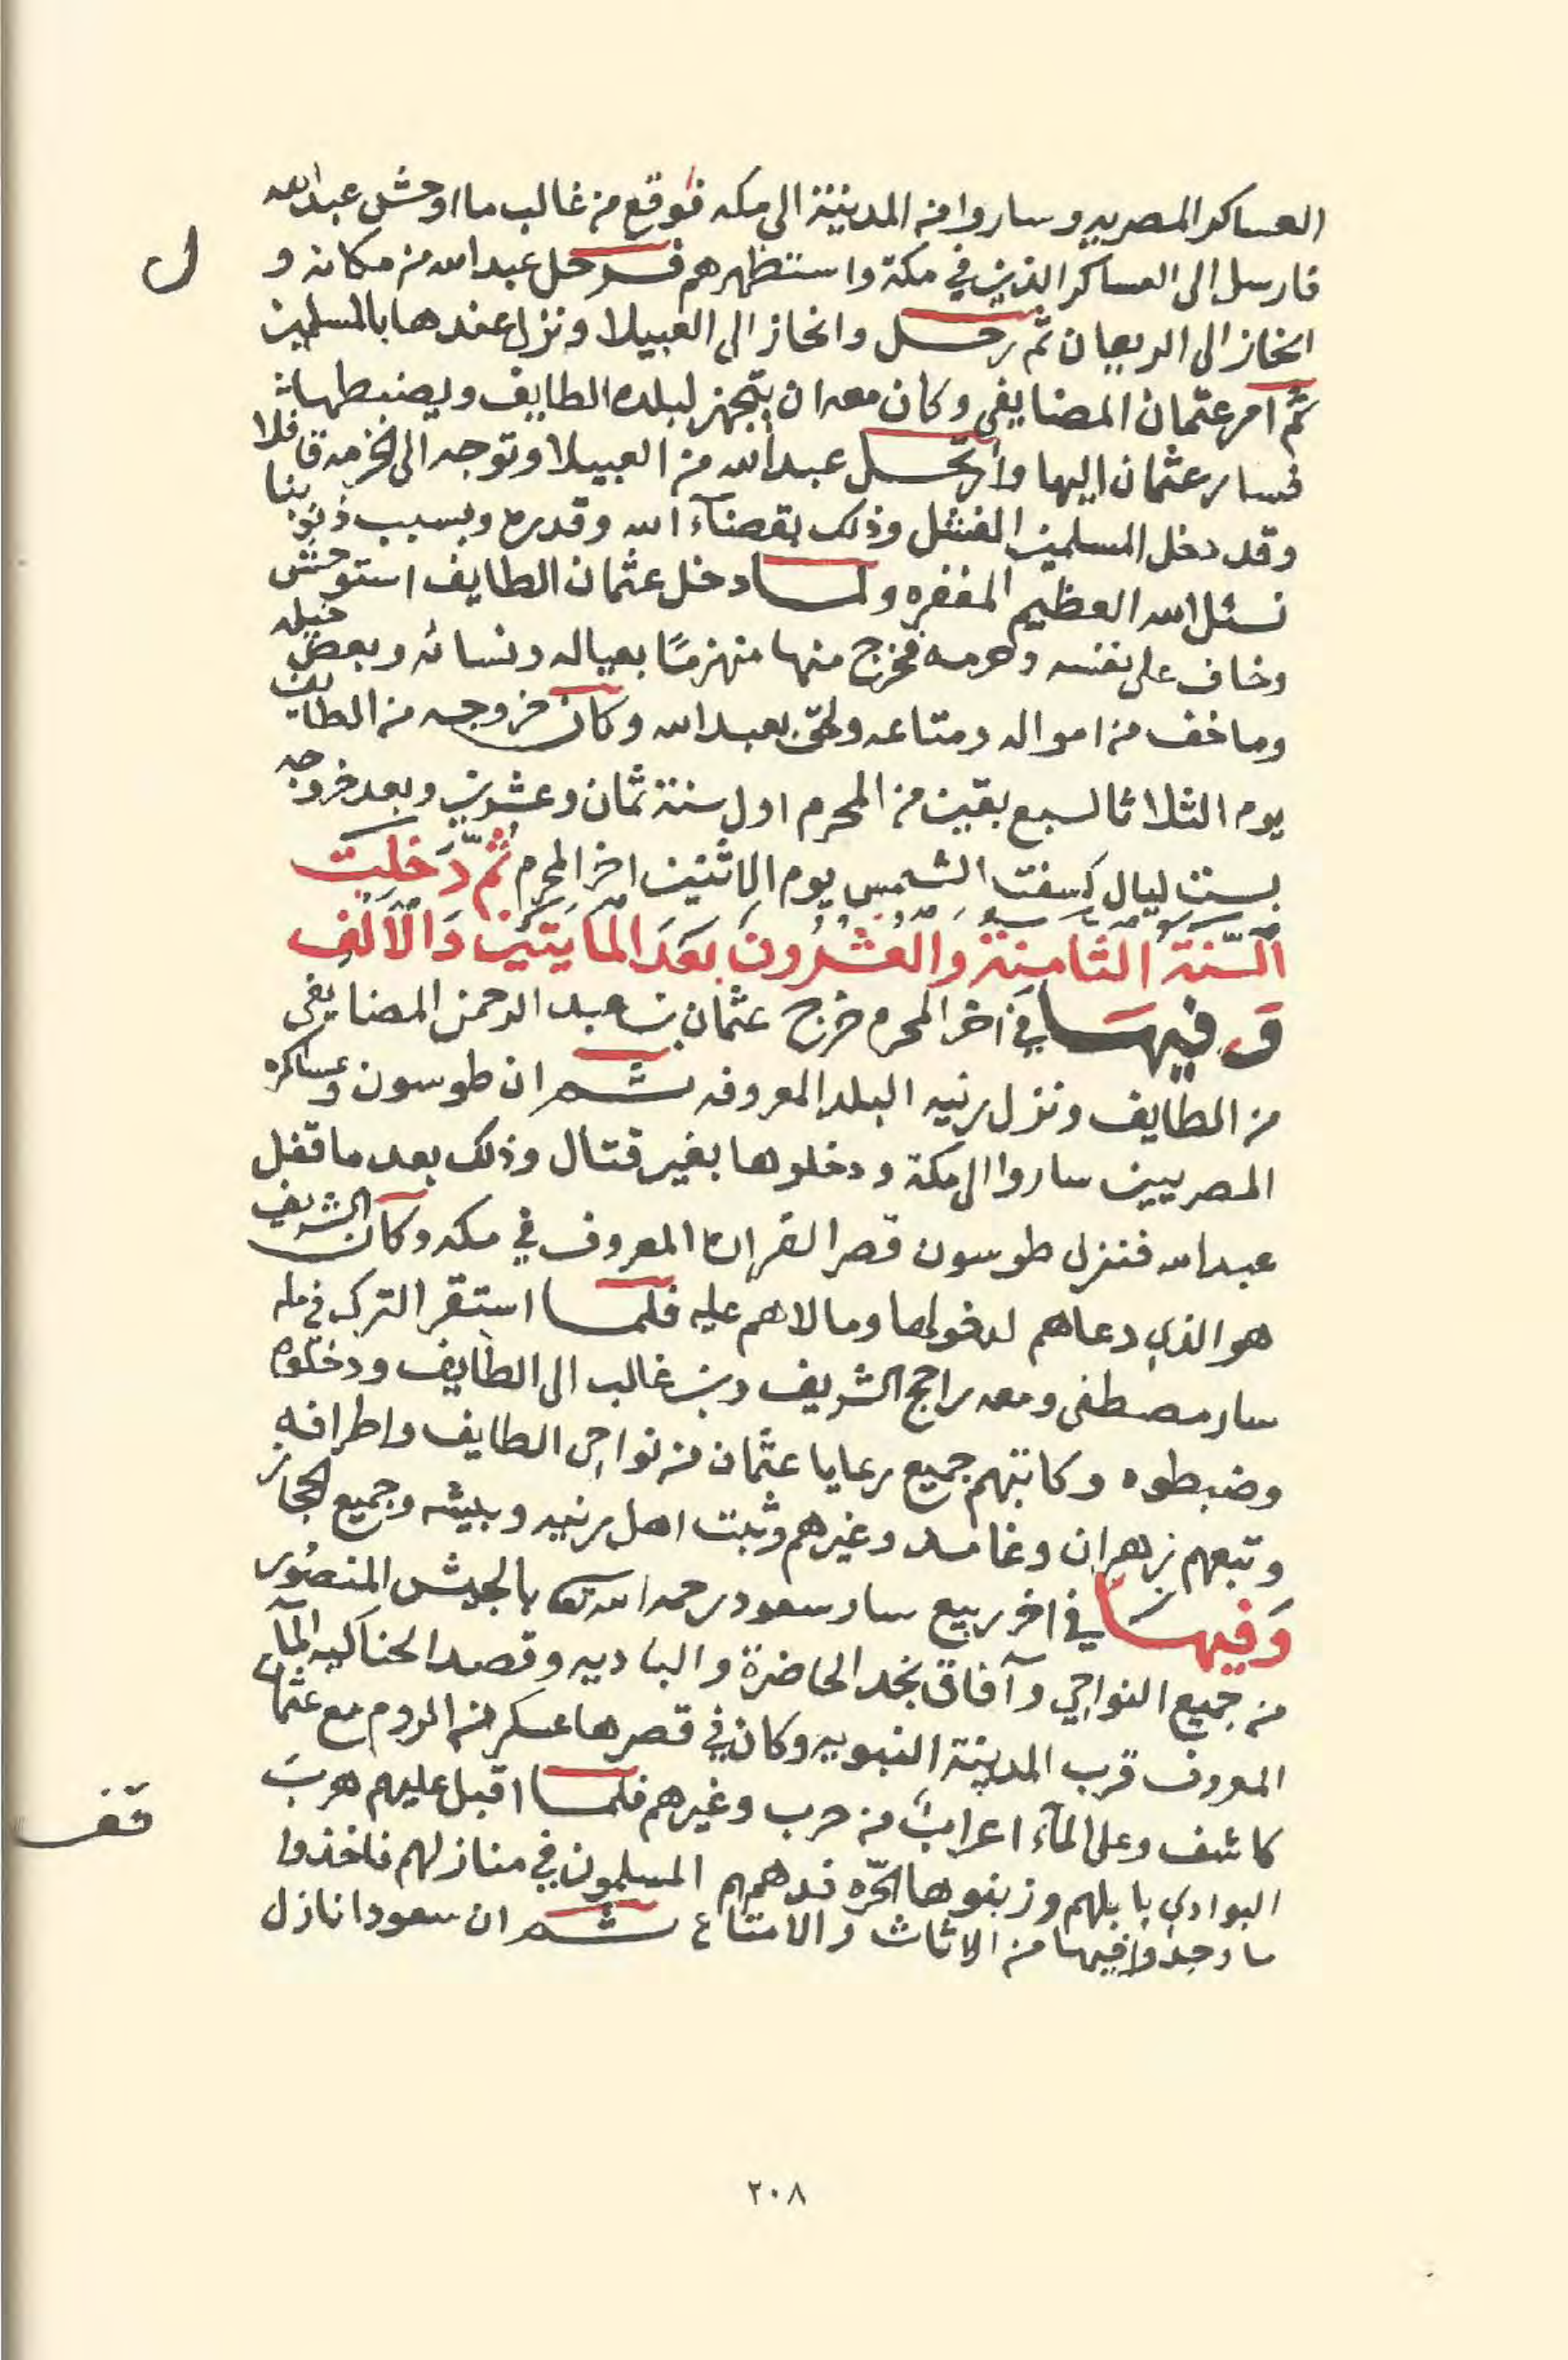 العساكر المصريه وساروا من المدينة الى مكه فوقع من غالب ما اوحش عبدالله
فارسل الى العساكر الذين في مكة واستظهرهم فرحل عبدالله من مكانه و
انحاز الى الريعان ثم رحل وانحاز الى العبيلا ونزل عندها بالمسلمين
ثم امر عثمان المضايفي وكان معه ان يتجهز لبلده الطايف ويضبطها
فسار عثمان اليها وارتحل عبدالله من العبيلا وتوجه الى الخرمه قافلا
وقد دخل المسلمين الفشل وذلك بقضآء الله وقدره وبسبب ذنوبنا
نسئل الله العظيم المغفره ولما دخل عثمان الطايف استوحش
وخاف على نفسه وحرمه فخرج منها منهزمًا بعياله ونسائه وبعض خيله
وما خف من امواله ومتاعه ولحق بعبدالله وكان خروجه من الطايف
يوم الثلاثا لسبع بقين من المحرم اول سنة ثمان وعشرين وبعد خروجه
بست ليال كسفت الشمس يوم الاثنين اخر المحرم ثُمّ دَخلَتَ
السّنَة الثَامِنَة وَالعُشرُونَ بَعَدَ المَايَتَيَن وَالأَلَف
وَفيهَا في اخر المحرم خرج عثمان بن عبد الرحمن المضايفي
من الطايف ونزل رنيه البلد المعروفه ثم ان طوسون وعساكره
المصريين ساروا الى مكة ودخلوها بغير قتال وذلك بعد ما قفل
عبدالله فنزل طوسون قصر القراره المعروف في مكه وكان الشريف
هو الذي دعاهم لدخولها ومالاهم عليه فلما استقر الترك في مكه
سار مصطفى ومعه راجح الشريف وبن غالب الى الطايف ودخلوه
وضبطوه وكاتبهم جميع رعايا عثمان من نواحي الطايف واطرافه
وتبعهم زهران وغامد وغيرهم وثبت اهل رنيه وبيشه وجميع الحجاز
وَفيهَا في اخر ربيع سار سعود رحمه الله تعالى بالجيش المنصُور
من جميع النواحي وآفاق نجد الحاضرة والباديه وقصد الحناكيه المآء
المعروف قرب المدينة النبويه وكان في قصرها عسكر من الروم مع عثمان
كاشف وعلى المآء اعرابٌ من حرب وغيرهم فلما اقبل عليهم هربَ
البوادي بابلهم وزبنوها الحّره فدهمهم المسلمون في منازلهم فاخذوا
ما وجدوا فيها من الاثاث والامتاع ثم ان سعودا نازل
ل
قف
٢٠٨